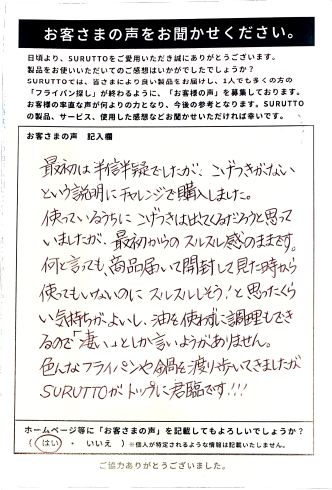 お客さまの声をお聞かせください。
日頃より、SURUTTOをご愛用いただき誠にありがとうございます。
製品をお使いいただいてのご感想はいかがでしたでしょうか?
SURUTTOでは、皆さまにより良い製品をお届けし、1人でも多くの方の
「フライパン探し」が終わるように、「お客様の声」を募集しております。
お客様の率直な声が何よりの力となり、今後の参考となります。SURUTTO
の製品、サービス、使用した感想などお聞かせいただければ幸いです。
お客さまの声 記入欄
最初は半信半疑でしたが、こげつきがない
という説明にチャレンジで購入しました。
使っているうちに こげつきは出てくるだろうと思って
いましたが、最初からのスルスル感のままです。
何と言っても、商品届いて開封して見た時から
使ってもいないのに スルスルしそう!と思ったくら
い気持ちがよいし、油を使わずに調理もでき
るので「凄い」としか言いようがありません。
色んなフライパンや鍋を渡り歩いてきましたが
SURUTTOがトップに君臨です!!!
ホームページ等に「お客さまの声」を記載してもよろしいでしょうか?
( はい ・ いいえ ) ※個人が特定されるような情報は記載いたしません。
ご協力ありがとうございました。